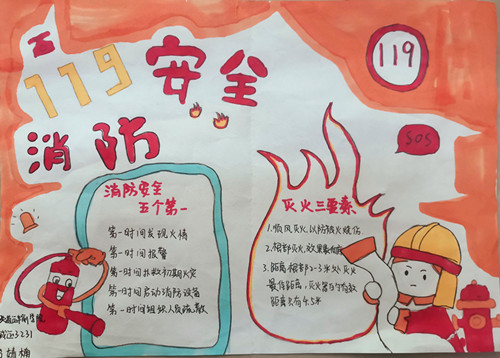 119
安全
消防
119
SOS
消防安全
五个第一
第一时间发现火情
第一时间报警
第一时间扑救初期火灾
第一时间启动消防设备
第一时间组织人员疏散
灭火三要素
1.顺风灭火,以防被火烧伤
2.根部灭火,效果最佳
3.距离根部2-3米处灭火
最佳距离,灭火器的有效
距离只有4.5米
学院
3231